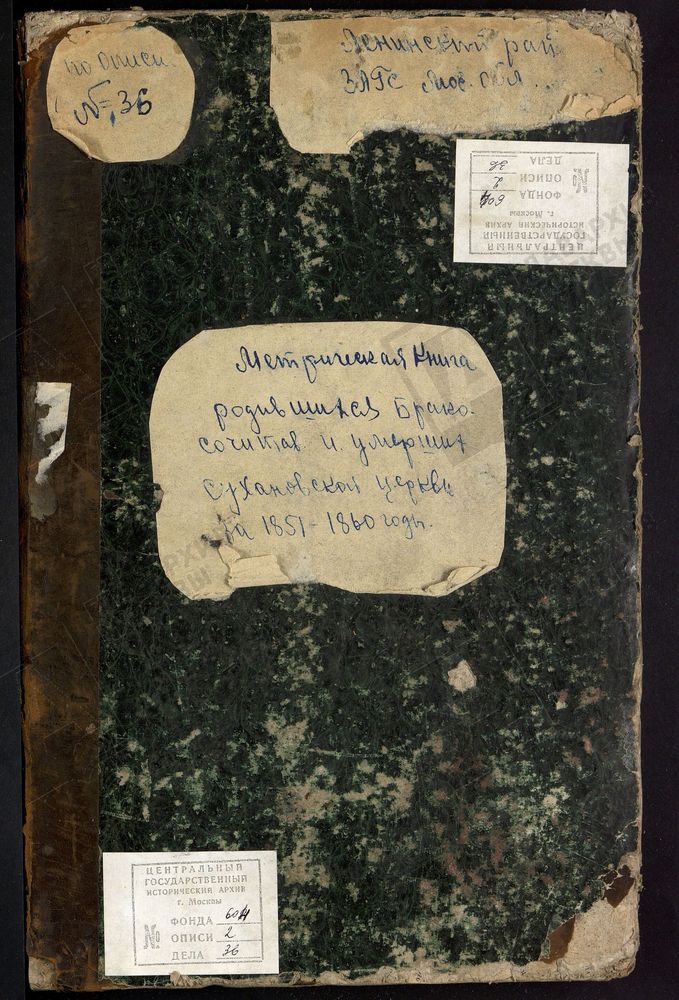 по описи
№ 36
Ленинский рай
ЗАГС Мос. Обл...
ЦЕНТРАЛЬНЫЙ
ГОСУДАРСТВЕННЫЙ
ИСТОРИЧЕСКИЙ АРХИВ
г. Москвы
ФОНДА
№ ОПИСИ 2
ДЕЛА 36
Метрическая Книга
родившихся Брако-
сочитав. и. умерших
Сухановской церкви
За 1851-1860 годы.
ЦЕНТРАЛЬНЫЙ
ГОСУДАРСТВЕННЫЙ
ИСТОРИЧЕСКИЙ АРХИВ
г. Москвы
ФОНДА
№ ОПИСИ 2
ДЕЛА 36